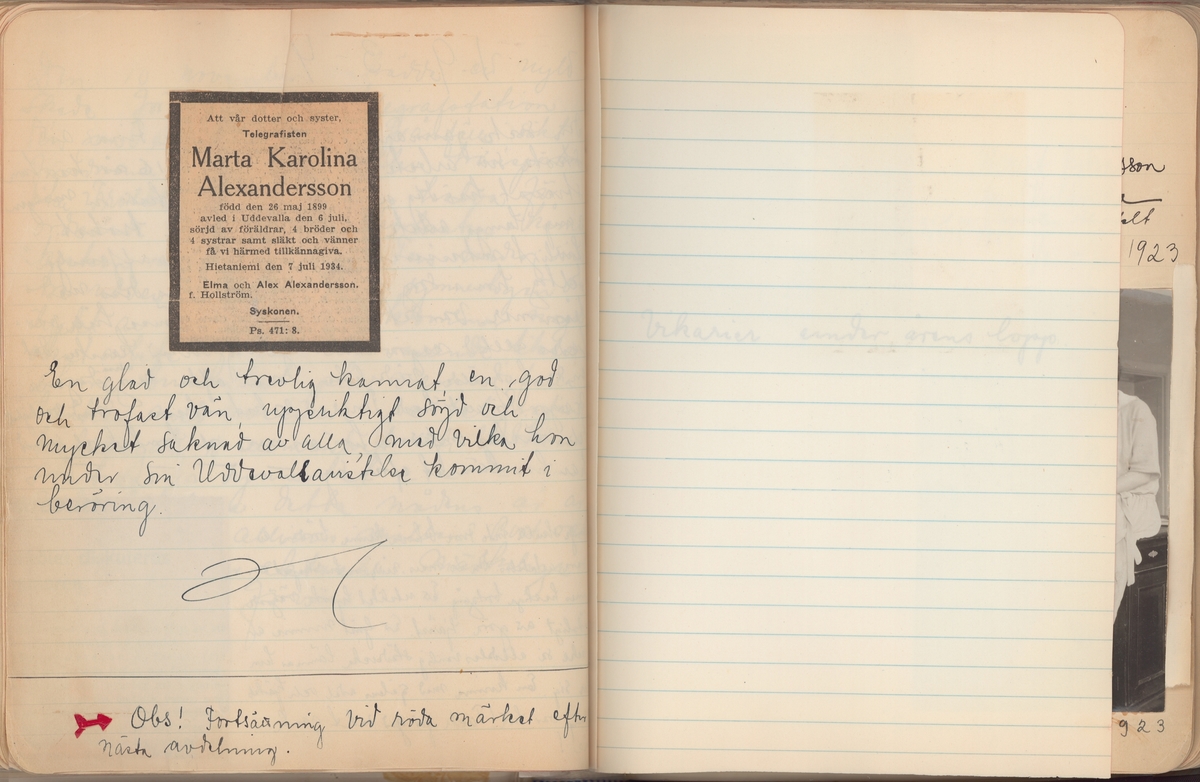 Att vår dotter och syster,
Telegrafisten
Marta Karolina
Alexandersson
född den 26 maj 1899
avled i Uddevalla den 6 juli,
sörjd av föräldrar, 4 bröder och
4 systrar samt släkt och vänner
få vi härmed tillkännagiva.
Hietaniemi den 7 juli 1934.
Elma och Alex Alexandersson.
f. Hollström.
Syskonen.
Ps. 471: 8.
En glad och trevlig kamrat, en god
och trofast vän, uppriktigt sörjd och
mycket saknad av alla, med vilka hon
under sin Uddevallavistelse kommit i
beröring.
Obs! Fortsättning vid röda märket efter
nästa avdelning.
Vikarier under årens lopp
1923
923